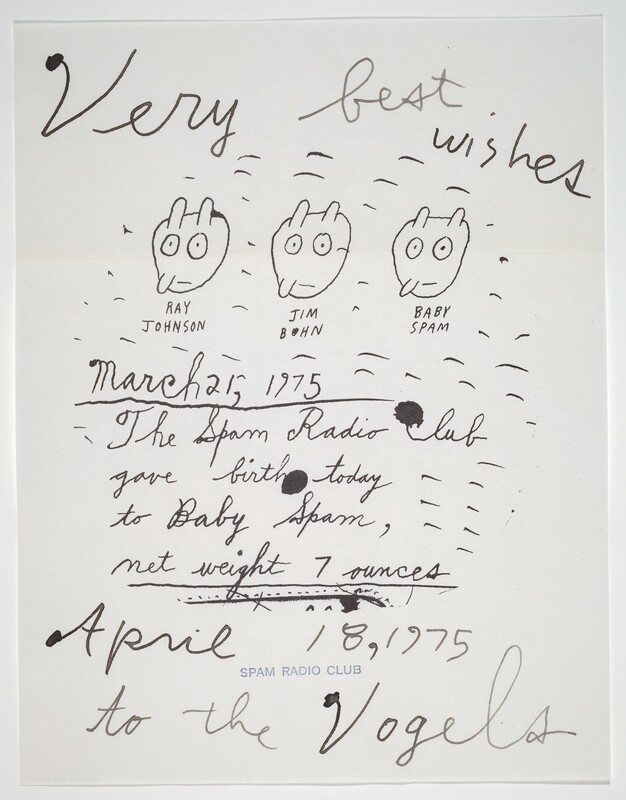 Very best
wishes
RAY
JOHNSON
JIM
BOHN
BABY
SPAM
March 25, 1975
The Spam Radio Club
gave birth today
to Baby Spam,
net weight 7 ounces
April 18, 1975
SPAM RADIO CLUB
to the Vogels